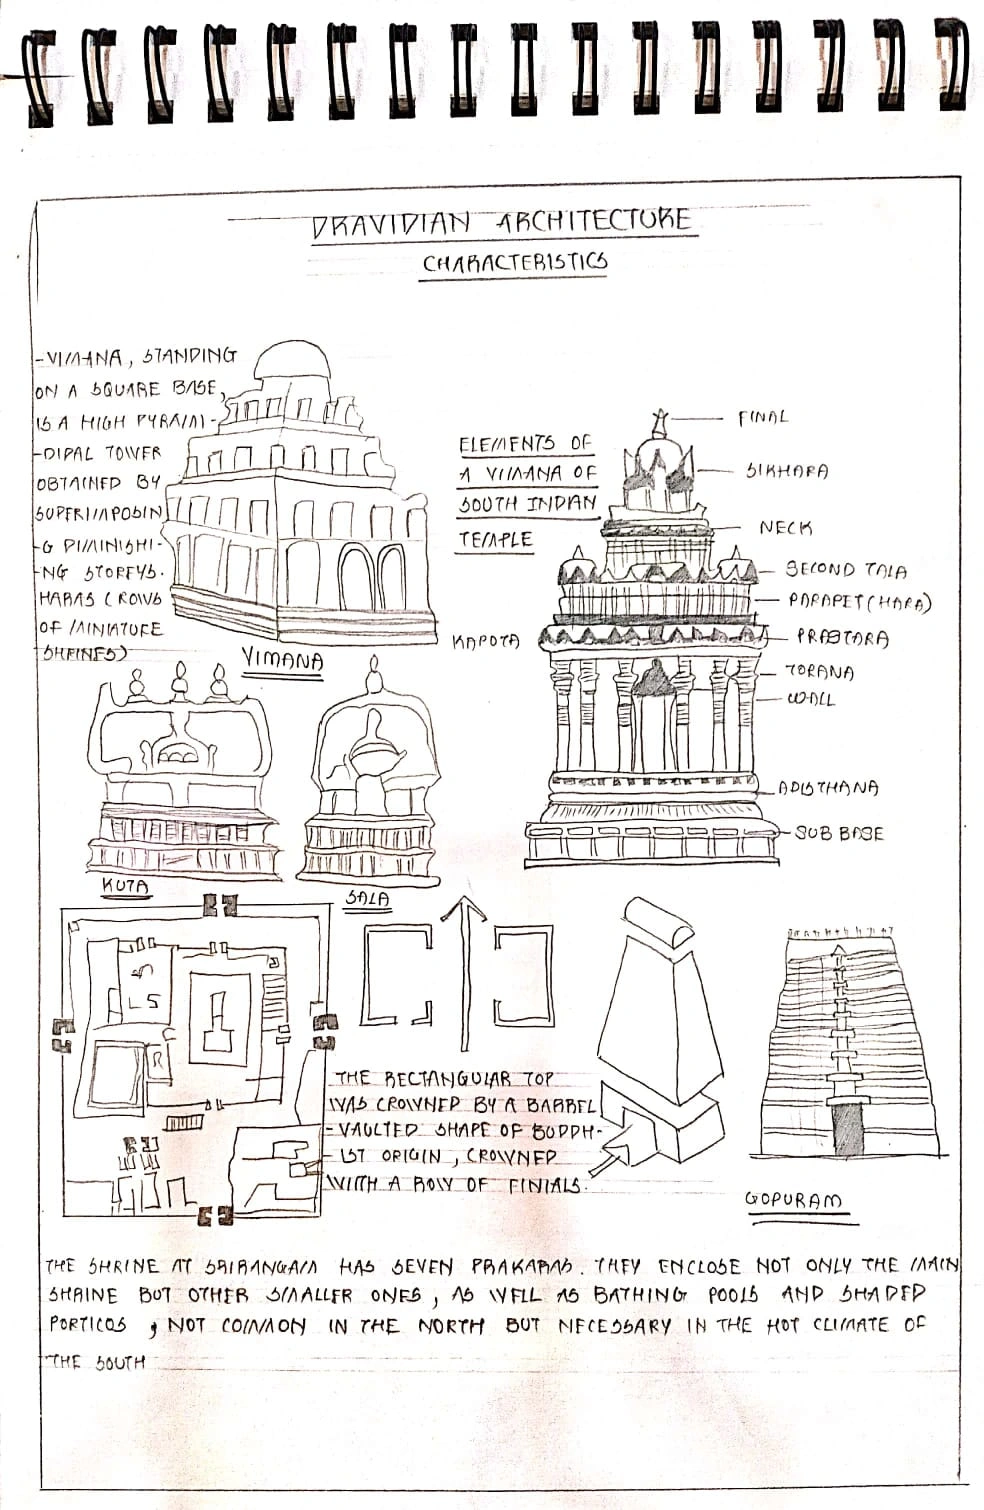 DRAVIDIAN ARCHITECTURE
CHARACTERISTICS
-VIMANA, STANDING
ON A SQUARE BASE,
IS A HIGH PYRAMI-
-DIPAL TOWER
OBTAINED BY
SUPERIMPOSIN
-G DIMINISHI-
-NG STOREYS.
HARAS (ROWS
OF MINIATURE
SHRINES)
VIMANA
ELEMENTS OF
A VIMANA OF
SOUTH INDIAN
TEMPLE
FINAL
SIKHARA
NECK
SECOND TALA
PARAPET(HARA)
KAPOTA
PRASTARA
TORANA
WALL
ADISTHANA
SUB BASE
KUTA
SALA
THE RECTANGULAR TOP
WAS CROWNED BY A BARREL
-VAULTED SHAPE OF BUDDH-
-IST ORIGIN, CROWNED
WITH A ROW OF FINIALS.
GOPURAM
THE SHRINE AT SRIRANGAM HAS SEVEN PRAKARAS. THEY ENCLOSE NOT ONLY THE MAIN
SHRINE BUT OTHER SMALLER ONES, AS WELL AS BATHING POOLS AND SHADED
PORTICOS, NOT COMMON IN THE NORTH BUT NECESSARY IN THE HOT CLIMATE OF
THE SOUTH